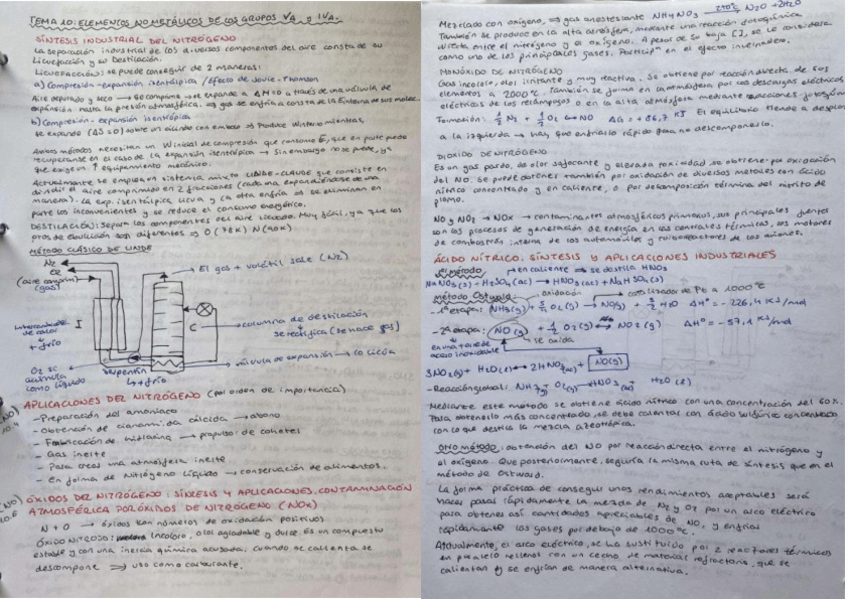 TEMA 10: ELEMENTOS NO METÁLICOS DE LOS GRUPOS VA y IVA.
SÍNTESIS INDUSTRIAL DEL NITRÓGENO
La separación industrial de los diversos componentes del aire consta de su
licuefacción y su destilación.
LICUEFACCIÓN: se puede conseguir de 2 maneras:
a) Compresión-expansión isentálpica / Efecto de Joule-Thomson
Aire depurado y seco → se comprime → se expande a ΔH=0 a través de una válvula de
expansión hasta la presión atmosférica. → gas se enfría a costa de la Eint
b) Compresión-expansión isentrópica
se expande (ΔS=0) sobre un cilindro con émbolo → Produce W
Ambos métodos necesitan un W inicial de compresión que consume E, que en parte puede
recuperarse en el caso de la expansión isentrópica → Sin embargo no se puede, ya
que exige un ↑ equipamiento mecánico.
Actualmente se emplea un sistema mixto LINDE-CLAUDE que consiste en
dividir el aire comprimido en 2 fracciones (cada una expandiéndose de una
manera). La exp. isentálpica licua y la otra enfría → se eliminan en
parte los inconvenientes y se reduce el consumo energético.
DESTILACIÓN: Separa los componentes del aire licuado. Muy fácil, ya que los
ptos de ebullición son diferentes
MÉTODO CLÁSICO DE LINDE
N2
O2
(aire comprim)
(gas)
El gas + volátil sale (N2)
I
C
columna de destilación
se rectifica (se hace gas)
Intercambiador
de calor
↓
+ frío
válvula de expansión → lo licúa
O2 se
acumula
como líquido
serpentín
↓
+ frío
(NO)
10.4
APLICACIONES DEL NITRÓGENO (por orden de importancia)
- Preparación del amoniaco
- Obtención de cianamida cálcida → abono
- Fabricación de hidrazina → propulsor de cohetes
- Gas inerte
- Para crear una atmósfera inerte
- En forma de Nitrógeno líquido → conservación de alimentos.
(NO)
10.6
ÓXIDOS DEL NITRÓGENO: SÍNTESIS Y APLICACIONES. CONTAMINACIÓN
ATMOSFÉRICA POR ÓXIDOS DE NITRÓGENO (NOx)
N + O → óxidos con números de oxidación positivos
ÓXIDO NITROSO: incoloro, olor agradable y dulce. Es un compuesto
estable y con una inercia química acusada. Cuando se calienta se
descompone ⇒ uso como carburante.
Mezclado con oxígeno, → gas anestesiante NH4NO3 → N2O + 2H2O
También se produce en la alta atmósfera, mediante una reacción fotoquímica
directa entre el nitrógeno y el oxígeno. A pesar de su baja se le considera
como uno de los principales gases. Particip en el efecto invernadero.
MONÓXIDO DE NITRÓGENO
Gas incoloro, olor irritante y muy reactiva. Se obtiene por reacción directa de sus
elementos a 2000°C. También se forma en la atmósfera por las descargas eléctricas
eléctricas de los relámpagos o en la alta atmósfera mediante reacciones
Formación: 1/2 N2 + 1/2 O2 ↔ NO ΔG = +86,7 KJ El equilibrio tiende a
a la izquierda → hay que enfriarlo rápido para no descomponerlo.
DIÓXIDO DE NITRÓGENO
Es un gas pardo, de olor sofocante y elevada toxicidad, se obtiene por oxidación
del NO. Se puede obtener también por oxidación de diversos metales con ácido
nítrico concentrado y en caliente, o por descomposición térmica del nitrato de
plomo.
NO y NO2 → NOx → contaminantes atmosféricos primarios, sus principales fuentes
son los procesos de generación de energía en las centrales térmicas, los motores
de combustión interna de los automóviles y turborreactores de los aviones.
ÁCIDO NÍTRICO. SÍNTESIS Y APLICACIONES INDUSTRIALES
método en caliente → se destila HNO3
NaNO3(s) + H2SO4(ac) → HNO3(ac) + NaHSO4(s)
Método Ostwald
oxidación
catalizador de Pt a 1000°C
- 1ª etapa: NH3(g) + 5/4 O2(g) → NO(g) + 3/2 H2O ΔHº = -226,4 KJ/mol
- 2ª etapa: NO(g) + 1/2 O2(g) → NO2(g) ΔHº = -57,1 KJ/mol
en una torre de
acero inoxidable
se oxida
3NO2(g) + H2O(l) ↔ 2HNO3(ac) + NO(g)
- Reacción global: NH3(g) + O2(g) → HNO3(ac) + H2O(l)
Mediante este método se obtiene ácido nítrico con una concentración del 60%.
Para obtenerlo más concentrado, se debe calentar con ácido sulfúrico concentrado
con lo que destila la mezcla azeotrópica.
Otro método: obtención del NO por reacción directa entre el nitrógeno y
el oxígeno. Que posteriormente, seguiría la misma ruta de síntesis que en el
método de Ostwald.
La forma práctica de conseguir unos rendimientos aceptables será
hacer pasar rápidamente la mezcla de N2 y O2 por un arco eléctrico
para obtener así cantidades apreciables de NO, y enfriar
rápidamente los gases por debajo de 1000°C.
Actualmente, el arco eléctrico, se ha sustituido por 2 reactores térmicos
en paralelo rellenos con un lecho de material refractario, que se
calientan y se enfrían de manera alternativa.